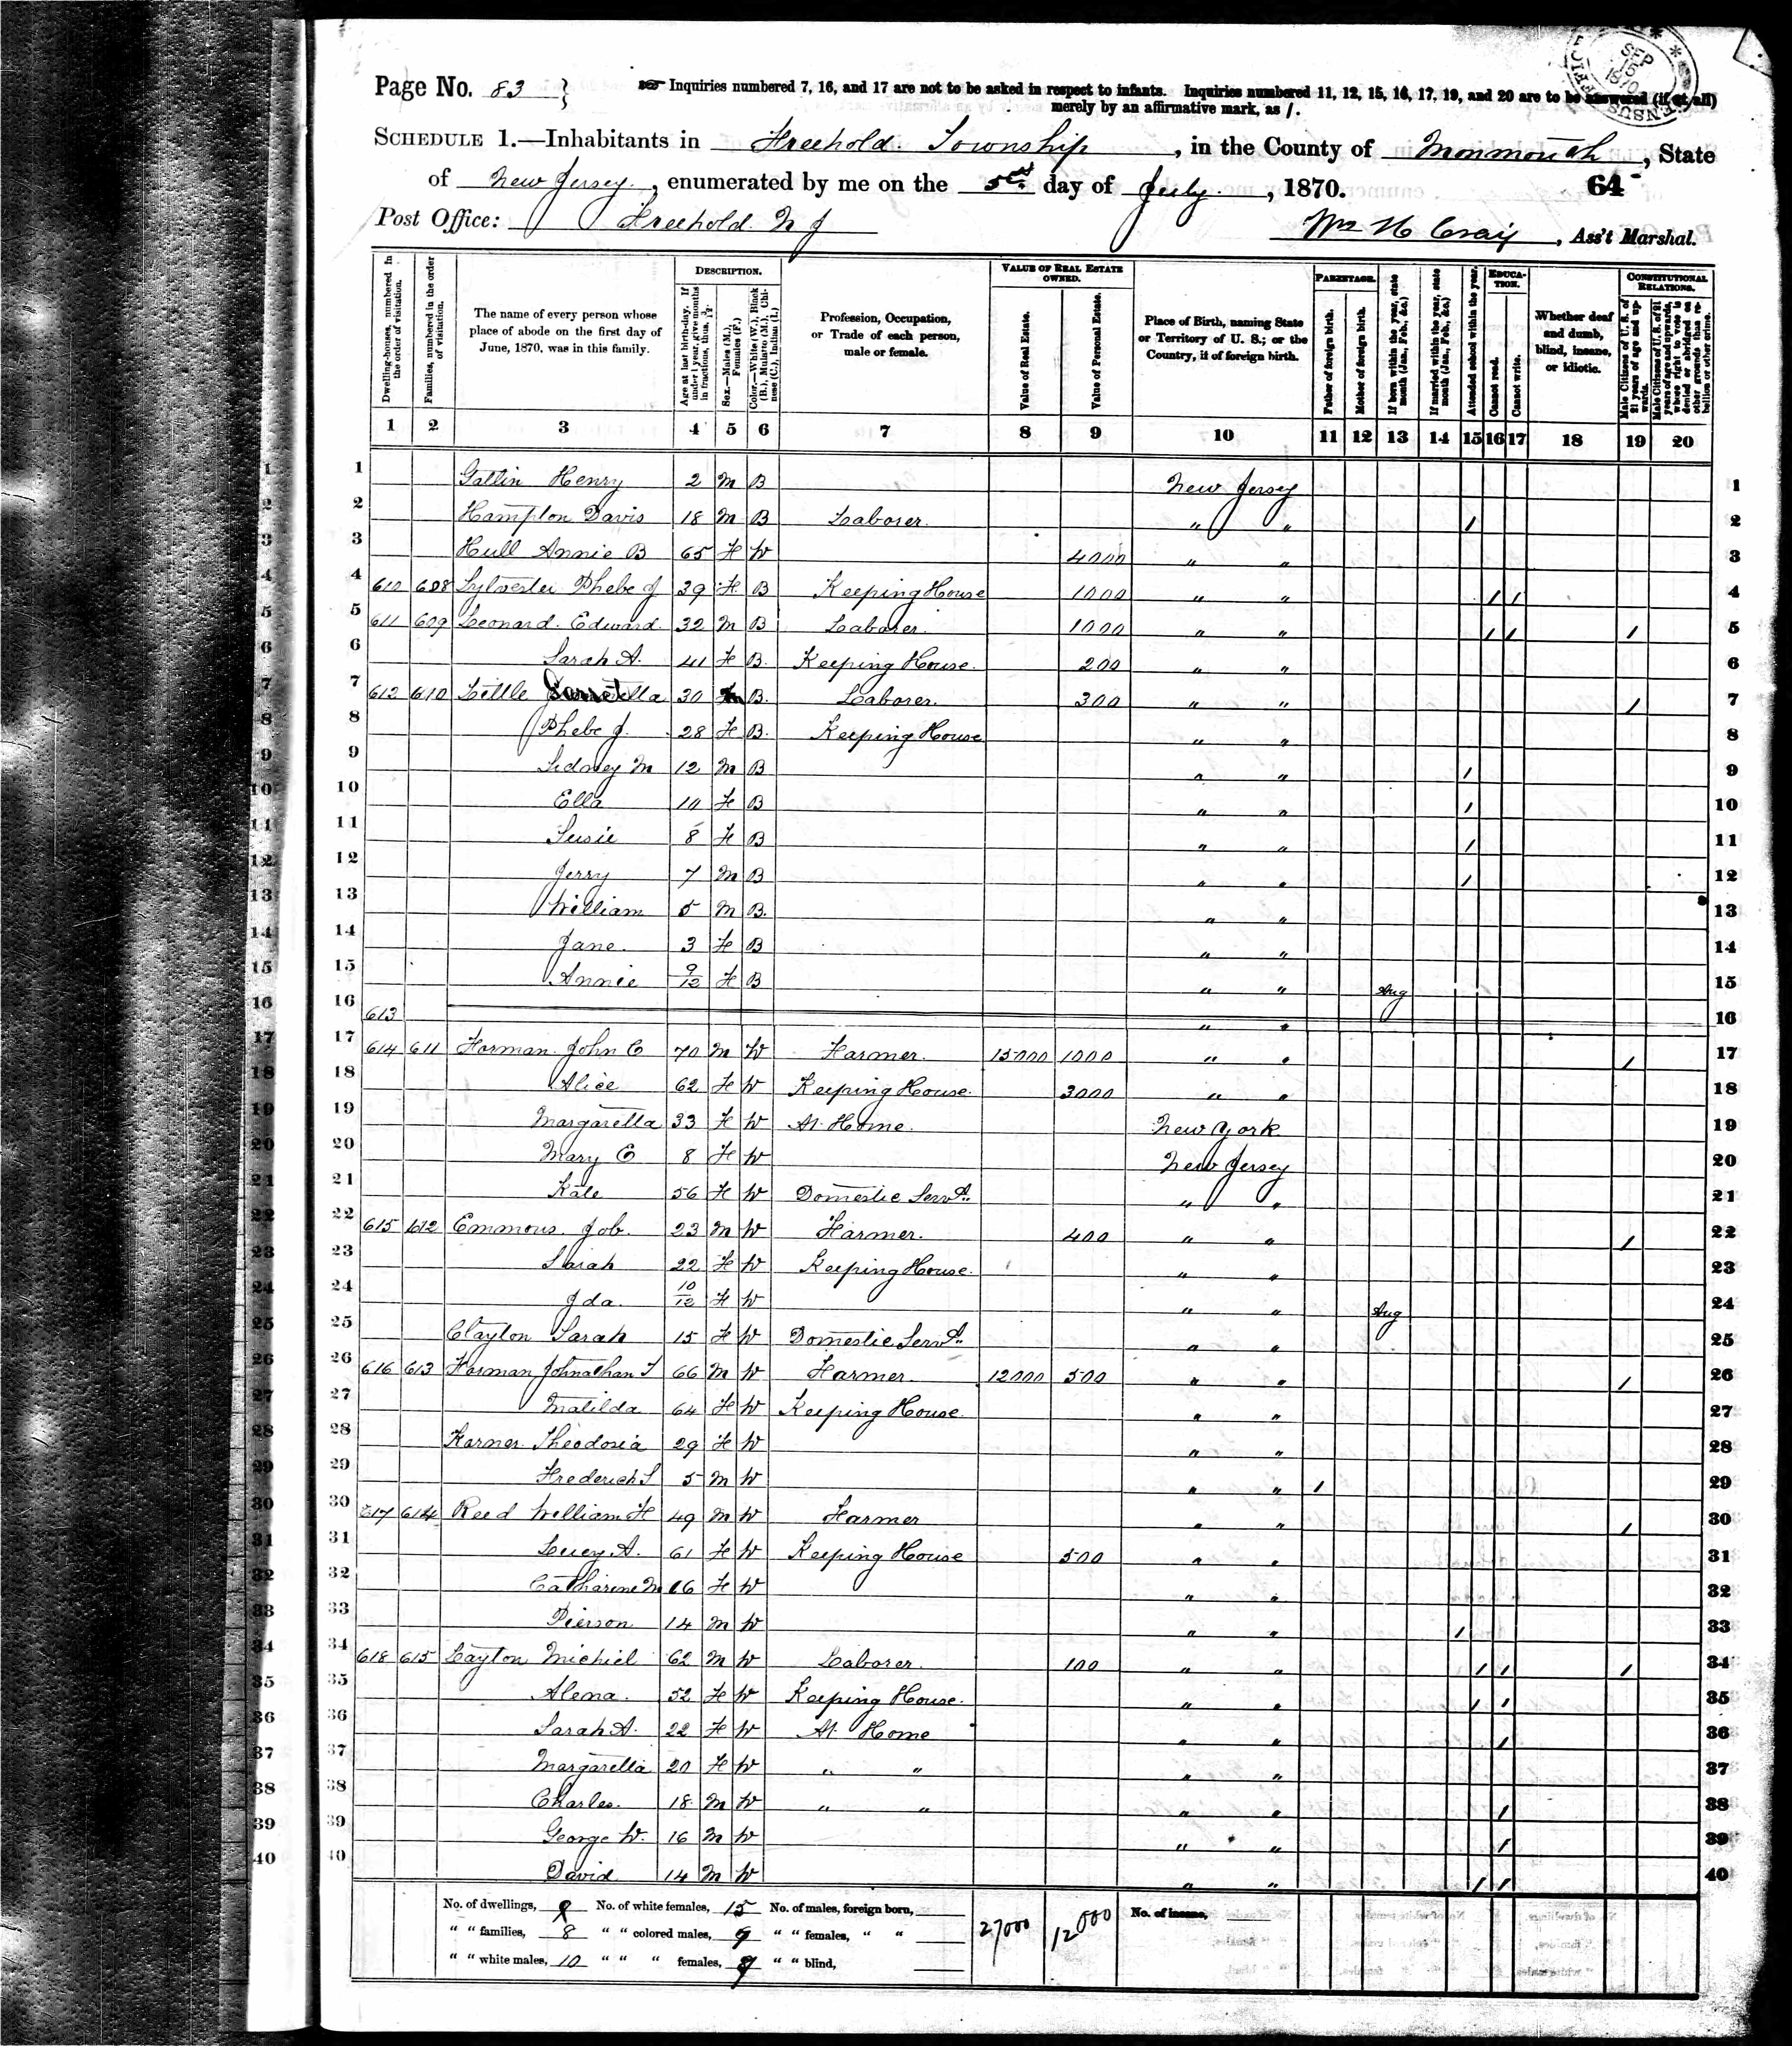 Page No. 83
Inquiries numbered 7, 16, and 17 are not to be asked in respect to infants. Inquiries numbered 11, 12, 15, 16, 17, 19, and 20 are to be answered (if at all)
merely by an affirmative mark, as /.
SEP 15 1870
CENSUS
SCHEDULE 1.—Inhabitants in Freehold Township, in the County of Monmouth, State
of New Jersey, enumerated by me on the 5th day of July, 1870. 64
Post Office: Freehold N J
Wm H Craig, Ass't Marshal.
Dwelling-houses, numbered in the order of visitation.
Families, numbered in the order of visitation.
The name of every person whose place of abode on the first day of June, 1870, was in this family.
DESCRIPTION.
Age at last birth-day. If under 1 year, give months in fractions, thus, 3/12.
Sex.—Males (M.), Females (F.)
Color.—White (W.), Black (B.), Mulatto (M.), Chinese (C.), Indian (I.)
Profession, Occupation, or Trade of each person, male or female.
VALUE OF REAL ESTATE OWNED.
Value of Real Estate.
Value of Personal Estate.
Place of Birth, naming State or Territory of U. S.; or the Country, if of foreign birth.
PARENTAGE.
Father of foreign birth.
Mother of foreign birth.
If born within the year, state month (Jan., Feb., &c.)
If married within the year, state month (Jan., Feb., &c.)
Attended school within the year.
EDUCATION.
Cannot read.
Cannot write.
Whether deaf and dumb, blind, insane, or idiotic.
CONSTITUTIONAL RELATIONS.
Male Citizens of U. S. of 21 years of age and upwards.
Male Citizens of U. S. of 21 years of age and upwards, whose right to vote is denied or abridged on other grounds than rebellion or other crime.
1 2 3 4 5 6 7 8 9 10 11 12 13 14 15 16 17 18 19 20
1 Henry 2 M B New Jersey 1
2 Hampton Davis 18 M B Laborer " " / 2
3 Hull Annie B 65 F W 4000 " " 3
4 610 608 Sylvester Phebe J 39 F B Keeping House 1000 " " / / 4
5 611 609 Leonard Edward 32 M B Laborer 1000 " " / / / 5
6 Sarah A. 41 F B. Keeping House 200 " " 6
7 612 610 Little 30 M B. Laborer 300 " " / 7
8 Phebe J. 28 F B. Keeping House " " 8
9 Sidney M 12 M B " " / 9
10 Ella 10 F B " " / 10
11 Susie 8 F B " " / 11
12 Jerry 7 M B " " / 12
13 William 5 M B. " " 13
14 Jane. 3 F B " " 14
15 Annie 9/12 F B " " Aug 15
16 613 " " 16
17 614 611 Forman John C 70 M W Farmer. 15000 1000 " " / 17
18 Alice 62 F W Keeping House. 3000 " " 18
19 Margaretta 33 F W At Home. New York 19
20 Mary C 8 F W New Jersey 20
21 Kate 56 F W Domestic Servt. " " 21
22 615 612 Emmons Job. 23 M W Farmer. 400 " " / 22
23 Sarah 22 F W Keeping House. " " 23
24 Ida. 10/12 F W " " Aug 24
25 Clayton Sarah 15 F W Domestic Servt. " " 25
26 616 613 Forman Johnathan T 66 M W Farmer 12000 500 " " / 26
27 Matilda 64 F W Keeping House. " " 27
28 Karner Theodosia 29 F W " " 28
29 Frederick S 5 M W " " / 29
30 617 614 Reed William H 49 M W Farmer " " / 30
31 Lucy A. 61 F W Keeping House 500 " " 31
32 Catharine M 16 F W " " 32
33 Pierson 14 M W " " / 33
34 618 615 Layton Michiel 62 M W Laborer. 100 " " / / / 34
35 Alena. 52 F W Keeping House. " " / / 35
36 Sarah A. 22 F W At Home " " / 36
37 Margaretta 20 F W " " " " 37
38 Charles. 18 M W " " " " / 38
39 George W. 16 M W " " / 39
40 David 14 M W " " / / 40
No. of dwellings, No. of white females, 15 No. of males, foreign born, 27000 12000 No. of insane,
" " families, 8 " " colored males, 9 " " females, " "
" " white males, 10 " " " females, " " blind,